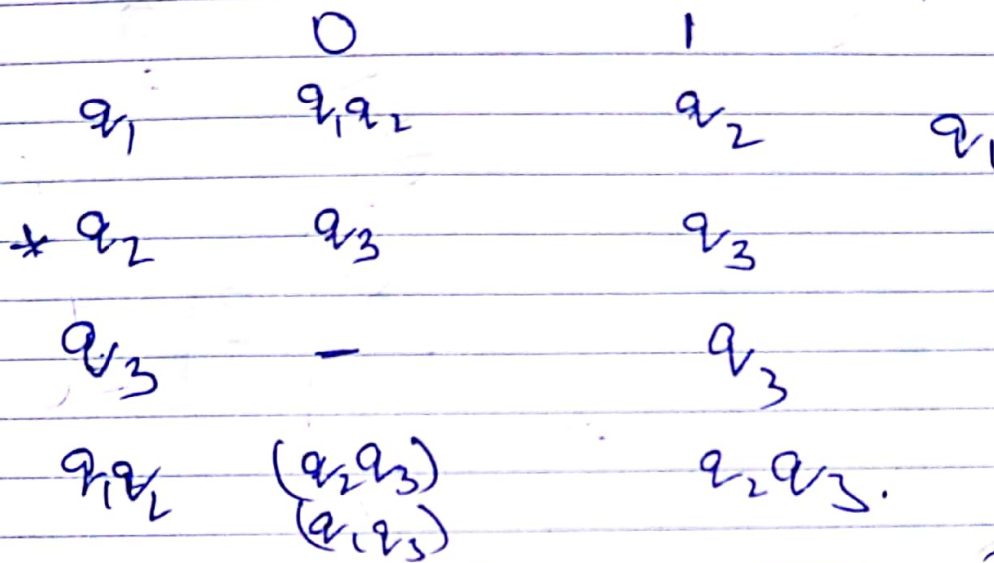 0 1
q₁ q₁q₂ q₂ q₁
* q₂ q₃ q₃
q₃ – q₃
q₁q₂ (q₂q₃) q₂q₃.
(q₁q₃)